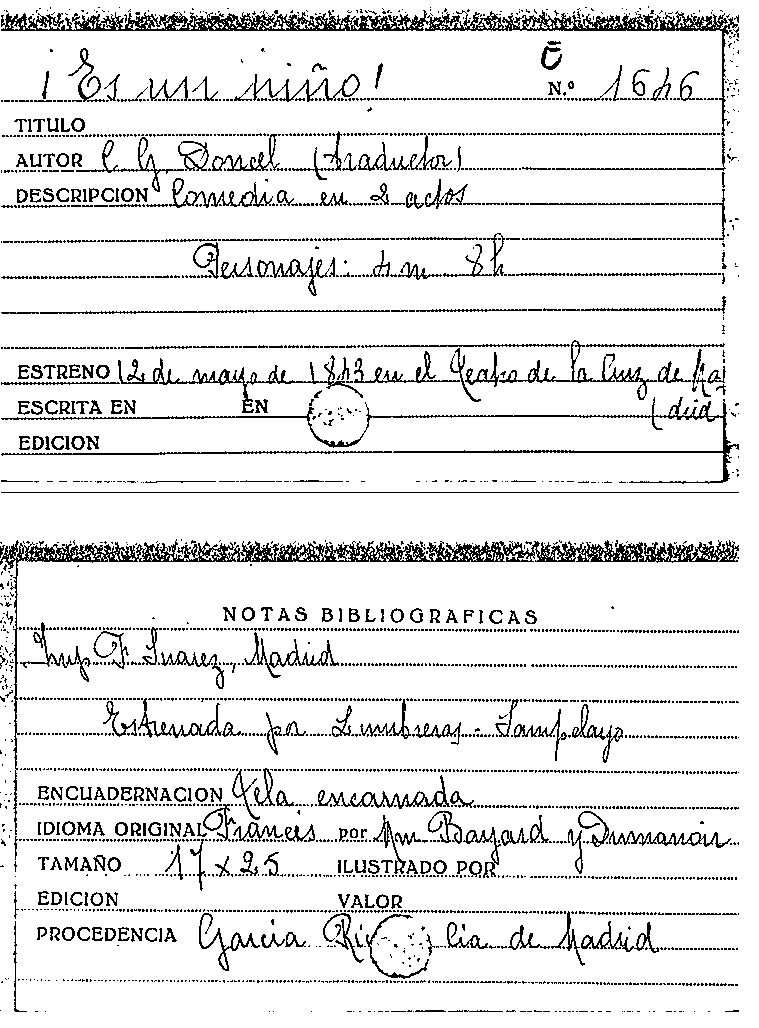 ¡Es un niño!
Ē
N.º 1646
TITULO
AUTOR C. G. Doncel (traductor)
DESCRIPCION Comedia en 2 actos
Personajes: 4 m 8 h
ESTRENO 12 de mayo de 1843 en el Teatro de la Cruz de Ma
ESCRITA EN EN (drid
EDICION
NOTAS BIBLIOGRAFICAS
Imp F. Suarez, Madrid
Estrenada por Lumbreras - Sampelayo
ENCUADERNACION Tela encarnada
IDIOMA ORIGINAL Francés por Mm Bayard y Dumanoir
TAMAÑO 17 x 25 ILUSTRADO POR
EDICION VALOR
PROCEDENCIA Garcia cia de Madrid